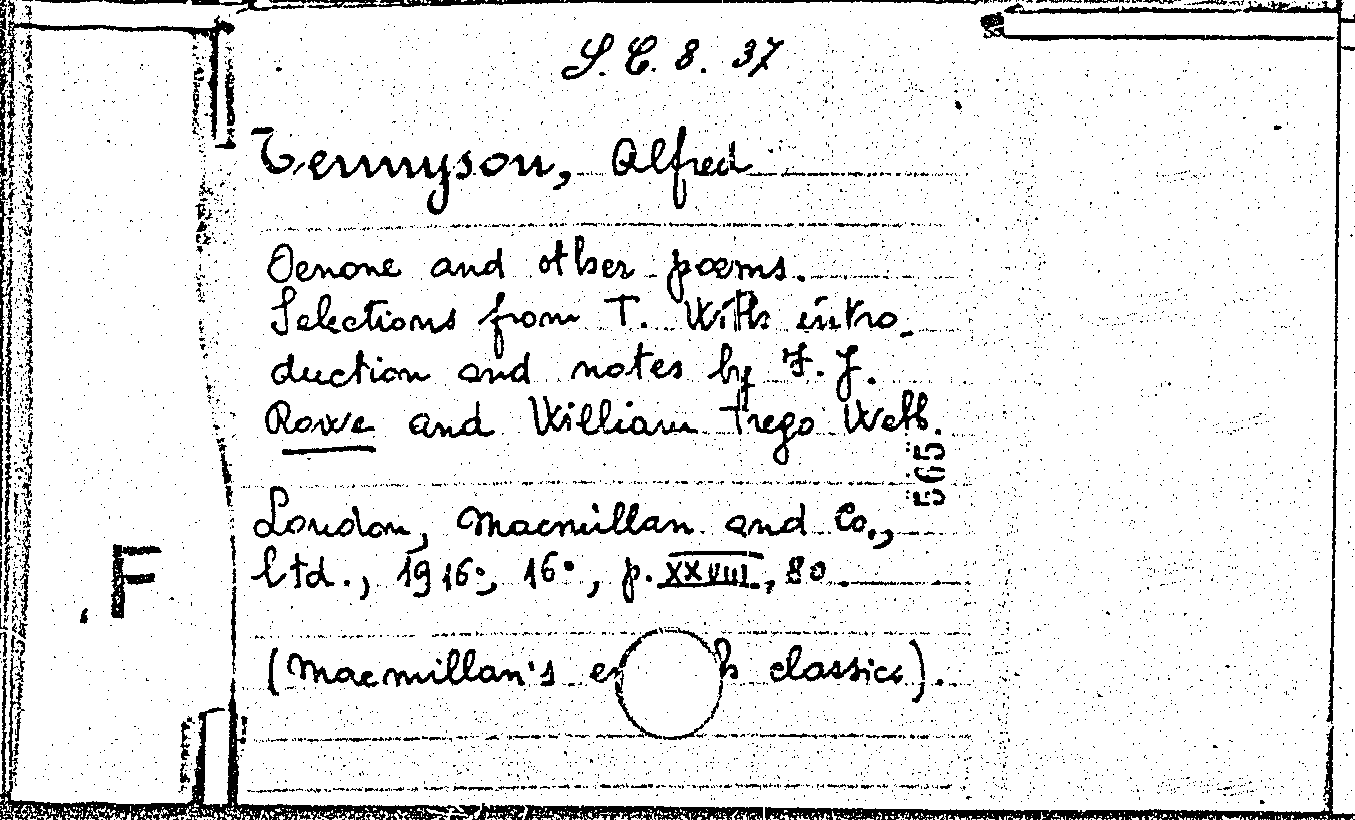 S. C. 8. 37
Tennyson, Alfred
Oenone and other poems.
Selections from T. With intro-
duction and notes by F. J.
Rowe and William Trego Webb.
565
London, Macmillan and Co.,
ltd., 1916., 16°, p. XXVIII, 80.
F
(Macmillan's classics).